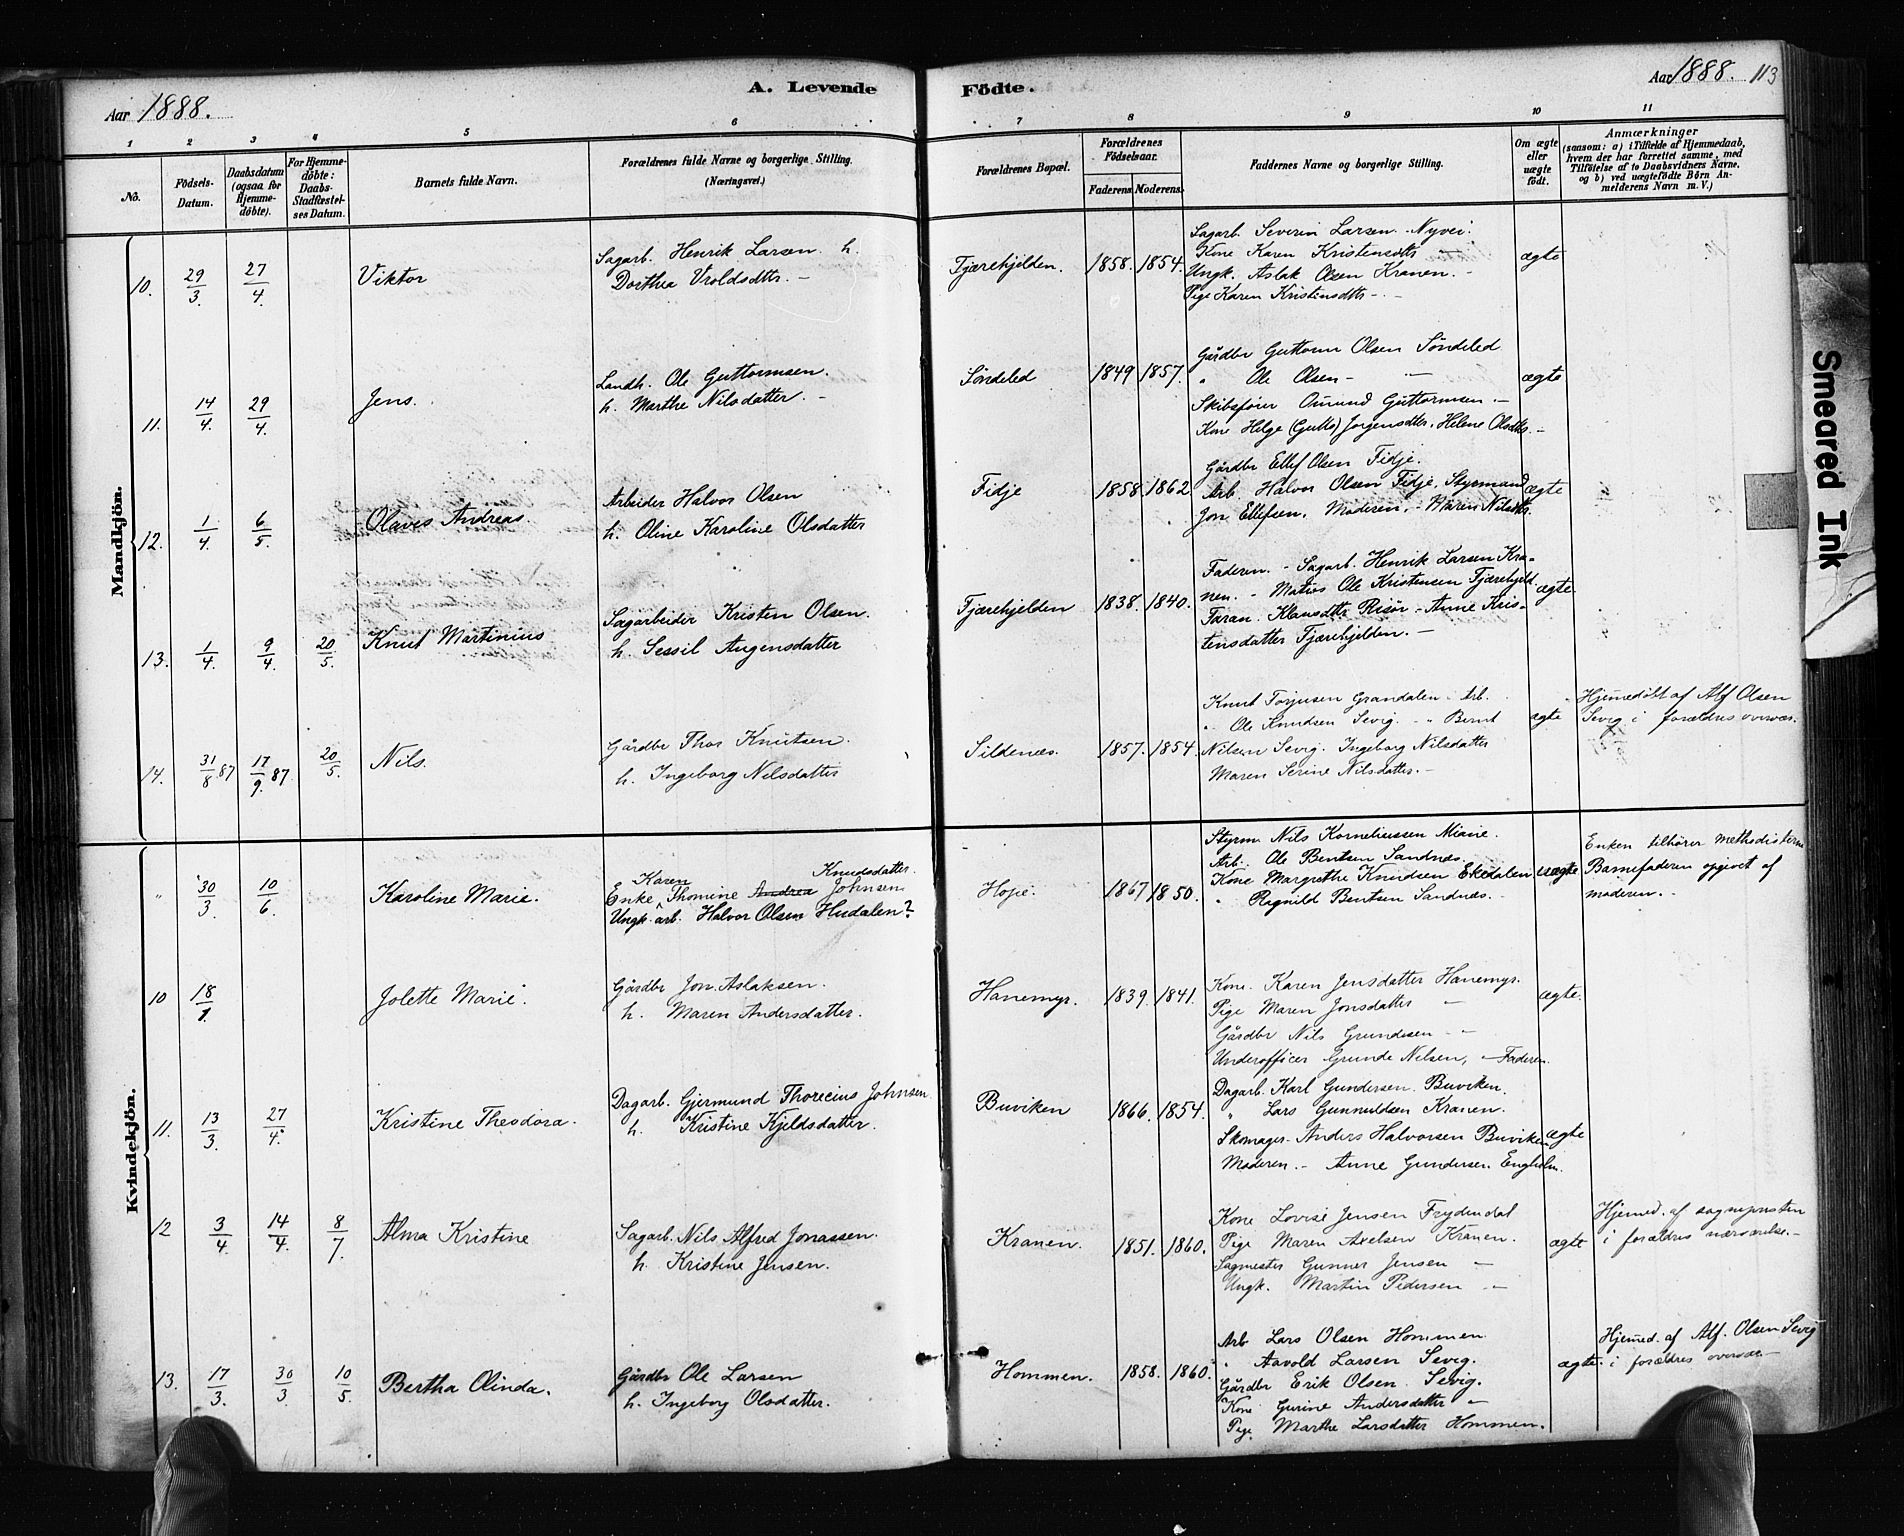 Aar 1888.
A. Levende
Födte.
Aar 1888. 113
1 2 3 4 5 6 7 8 9 10 11
No.
Födsels-Datum.
Daabsdatum (ogsaa for Hjemme-döbte).
For Hjemme-döbte: Daabs-Stadfæstel-ses Datum.
Barnets fulde Navn.
Forældrenes fulde Navne og borgerlige Stilling.
(Næringsvei.)
Forældrenes Bopæl.
Forældrenes Födselsaar.
Faderens. Moderens.
Faddernes Navne og borgerlige Stilling.
Om ægte eller uægte födt.
Anmærkninger
(saasom: a) i Tilfælde af Hjemmedaab, hvem der har forrettet samme, med Tilföielse af to Daabsvidners Navne, og b) ved uægtefödte Börn An-melderens Navn m. V.)
Mandkjön.
10. 29/3. 27/4 Viktor
Sagarb. Henrik Larsen. h.
Dorthea Vroldsdtr. -
Tjærehjelden. 1858. 1854.
Sagarb. Severin Larsen. Nyvei.
Kone Karen Kristensdtr —
Ungk. Aslak Olsen Kranen. -
Pige Karen Kristensdtr - -
ægte
11. 14/4. 29/4 Jens.
Landh. Ole Guttormsen.
h. Marthe Nilsdatter. -
Söndeled 1849 1857.
Gårdbr Guttorm Olsen Söndeled
" Ole Olsen - —
Skibsfören Omund Guttormsen. -
Kone Helge (Gutto) Jorgensdtr. Helene Olsdtr. -
ægte
12. 1/4 6/5 Olaves Andreas.
Arbeider Halvor Olsen
h. Oline Karoline Olsdatter
Fidje 1858 1862
Gårdbr Ellef Olsen Fidje.
Arb. Halvor Olsen Fidje, Styrmand
Jon Ellefsen. Moderen. - Maren Nilsdtr.
ægte
13. 1/4. 9/4 20/5. Knut Martinius
Sagarbeider Kristen Olsen.
h. Sessil Augensdatter
Tjærehjelden 1838. 1840.
Faderen. - Sagarb. Henrik Larsen Kra-
nen. - Matros Ole Kristensen Tjærehjeld.
Taran. Klausdtr Risör - Anne Kris-
tensdatter Tjærehjelden. -
ægte
14. 31/8 87 17/9. 87 20/5. Nils.
Gårdbr Thor Knutsen.
h. Ingeborg Nilsdatter
Sildenes. 1857. 1854.
Knut Torjusen Grandalen. Arb.
" Ole Knudsen Sevig. - " Bernt
Nilsen Sevig. Ingeborg Nilsdatter
Maren Serine Nilsdatter. -
ægte
Hjemmedöbt af Alf Olsen
Sevig i forældres overvær.
Kvindekjön.
" 30/3 10/6 Karoline Marie.
Karen Knudsdatter.
Enke Thomine Andrea Johnsen
Ungk. arb. Halvor Olsen Hudalen?
Hope. 1867 1850.
Styrm. Nils Korneliussen Miane.
Arb. Ole Bentsen Sandnes.
Kone Margrethe Knudsen Ekedalen
" Ragnild Bentsen Sandnes. -
uægte
Enken tilhører Methodisterne
Barnefaderen opgivet af
moderen. -
10 18/1. Jolette Marie.
Gårdbr Jon. Aslaksen.
h. Maren Andersdatter.
Hanemyr. 1839. 1841.
Kone. Karen Jensdatter Hanemyr.
Pige Maren Jonsdatter —
Gårdbr Nils Grundesen - -
Underofficer Grunde Nelsen, - Faderen.
ægte.
11. 13/3. 27/4. Kristine Theodora.
Dagarb. Gjermund Thorecius Johnsen
h. Kristine Kjeldsdatter.
Buviken 1866. 1854.
Dagarb. Karl Gundersen. Buviken.
" Lars Gunnuldsen Kranen.
Skomager. Anders Halvorsen Buviken
Moderen. - Anne Gundersen Engholm.
ægte
12 3/4 14/4 8/7 Alma Kristine
Sagarb. Nils Alfred Jonassen.
h. Kristine Jensen.
Kranen. 1851. 1860.
Kone Lovise Jensen Frydendal
Pige Maren Axelsen Kranen.
Sagmester Gunner Jensen —
Ungk. Martin Pedersen —
ægte
Hjemd. af sognepresten
i forældres nærværelse. -
13. 17/3. 30/3 10/5 Bertha Olinda.
Gårdbr Ole Larsen
h. Ingeborg Olsdatter.
Hommen. 1858. 1860.
Arb Lars Olsen Hommen.
" Aavold Larsen Sevig.
Gårdbr Erik Olsen. Sevig.
Kone Gurine Andersdatter —
Pige. Marthe Larsdatter Hommen.
ægte.
Hjemd. af Alf. Olsen Sevig
i forældres overvær. -
Smeared Ink